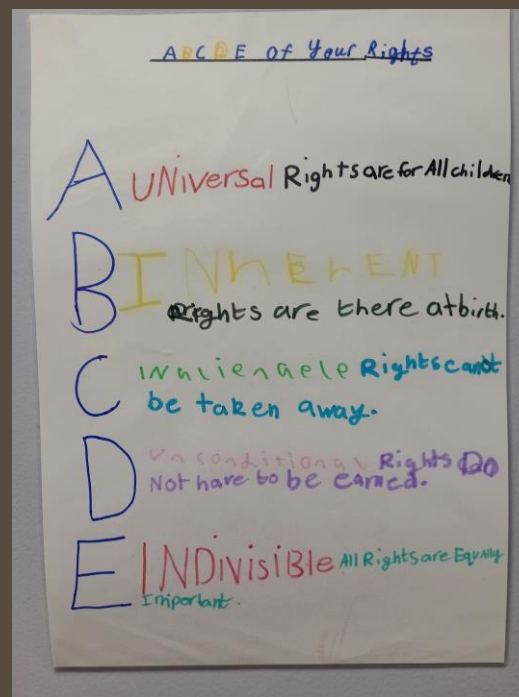 ABCDE of Your Rights
A UNiversal Rights are for All children
B INhERENT
Rights are there at birth.
C INalienaele Rights cannot
be taken away.
D Unconditional Rights Do
Not have to be earned.
E INDivisiBle All Rights are Equally
Important.